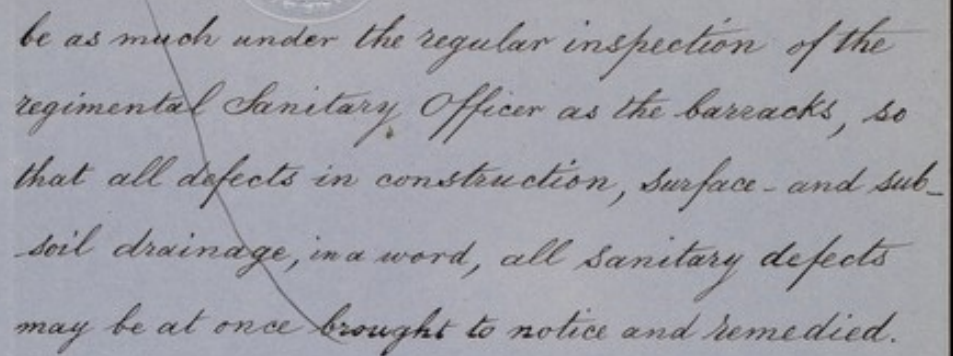 be as much under the regular inspection of the
regimental Sanitary Officer as the barracks, so
that all defects in construction, surface - and sub-
soil drainage, in a word, all sanitary defects
may be at once brought to notice and remedied.